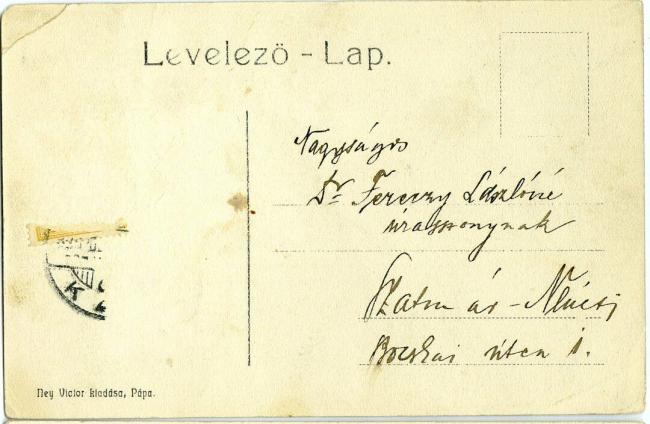 Levelező - Lap.
Nagyságos
Dr Ferenczy Lászlóné
úrasszonynak
Szatmár-Németi
Bocskai utca 1.
K
Ney Victor kiadása, Pápa.